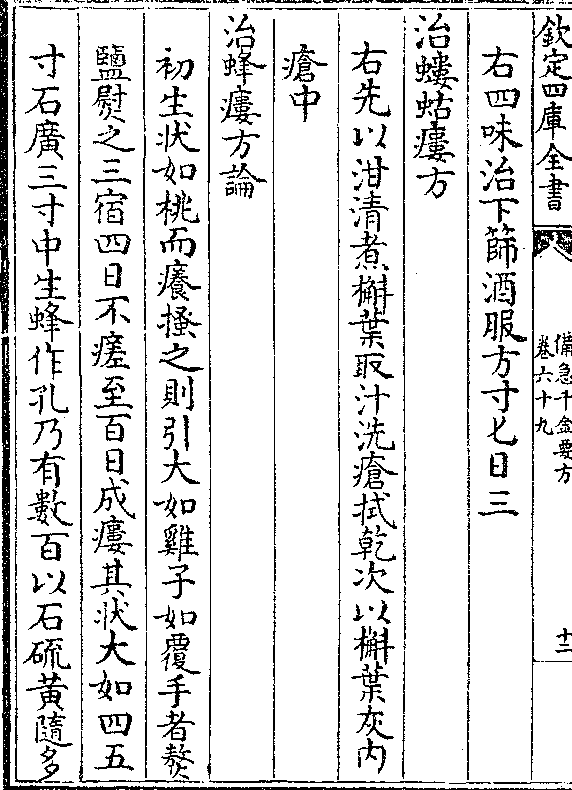 欽定四庫全書
備急千金要方
卷六十九
十二
右四味治下篩酒服方寸匕日三
治螻蛄瘻方
右先以泔清煮槲葉取汁洗瘡拭乾次以槲葉灰内
瘡中
治蜂瘻方論
初生狀如桃而癢搔之則引大如雞子如覆手者熬
鹽熨之三宿四日不瘥至百日成瘻其狀大如四五
寸石廣三寸中生蜂作孔乃有數百以石硫黄隨多